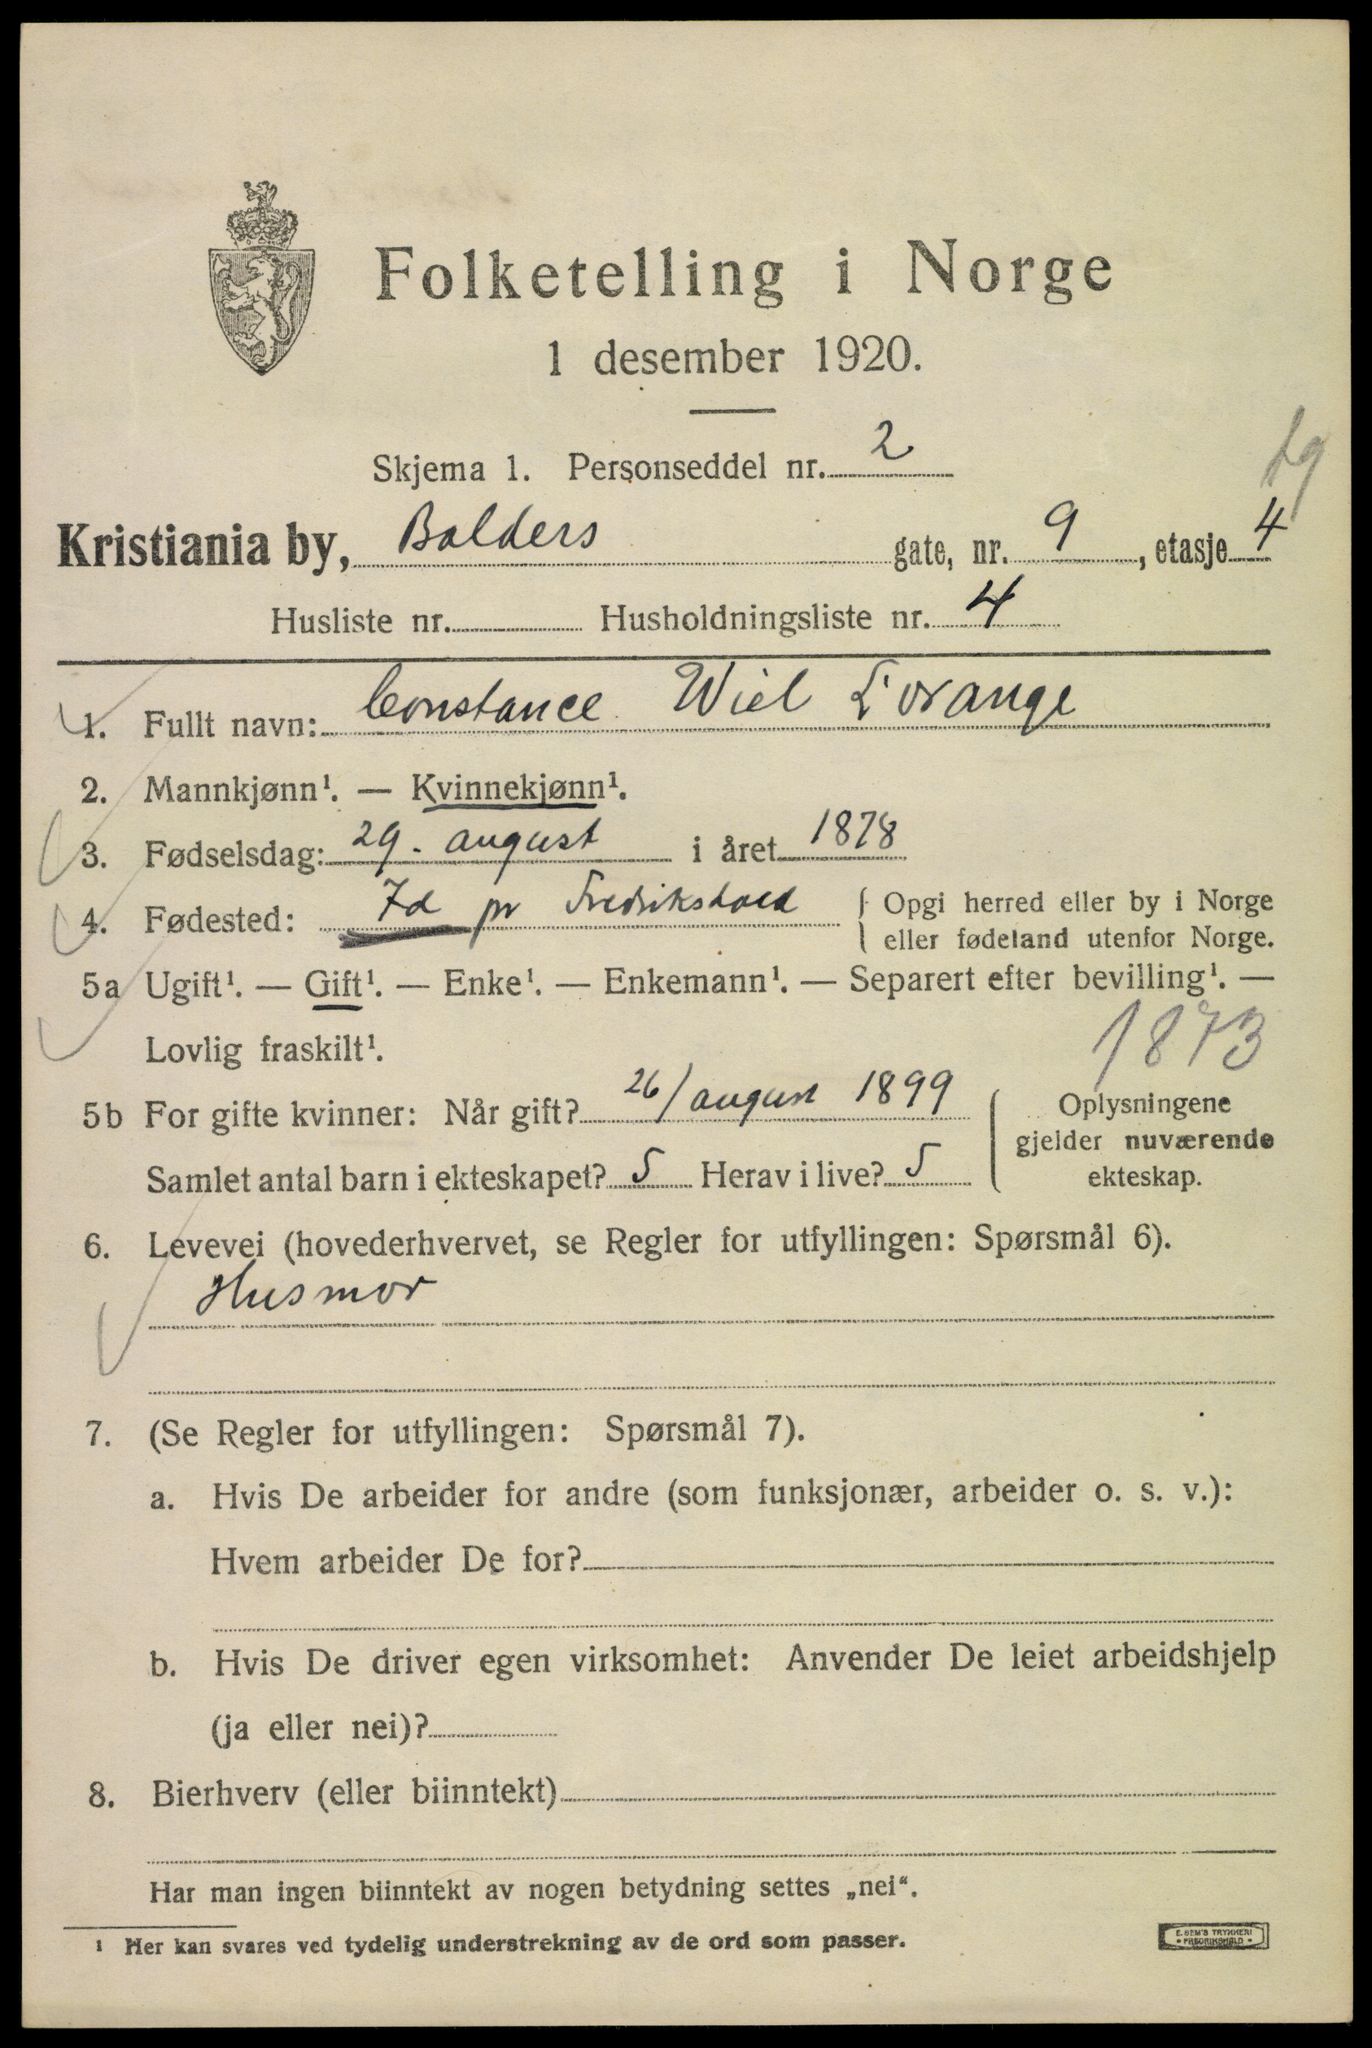 Folketelling i Norge
1 desember 1920.
Skjema 1. Personseddel nr. 2
Kristiania by, Balders gate, nr. 9, etasje 4
Husliste nr. Husholdningsliste nr. 4
1. Fullt navn: Constance Wiel L'orange
2. Mannkjønn¹. — Kvinnekjønn¹.
3. Fødselsdag: 29. august i året 1878
4. Fødested: Id pr Fredrikshald { Opgi herred eller by i Norge
eller fødeland utenfor Norge.
5a Ugift¹. — Gift¹. — Enke¹. — Enkemann¹. — Separert efter bevilling¹. —
Lovlig fraskilt¹.
1873
5b For gifte kvinner: Når gift? 26/august 1899 { Oplysningene
gjelder nuværende
Samlet antal barn i ekteskapet? 5 Herav i live? 5 ekteskap.
6. Levevei (hovederhvervet, se Regler for utfyllingen: Spørsmål 6).
Husmor
7. (Se Regler for utfyllingen: Spørsmål 7).
a. Hvis De arbeider for andre (som funksjonær, arbeider o. s. v.):
Hvem arbeider De for?
b. Hvis De driver egen virksomhet: Anvender De leiet arbeidshjelp
(ja eller nei)?
8. Bierhverv (eller biinntekt)
Har man ingen biinntekt av nogen betydning settes „nei“.
¹ Her kan svares ved tydelig understrekning av de ord som passer.
E. SEM'S TRYKKERI
• FREDRIKSHALD •